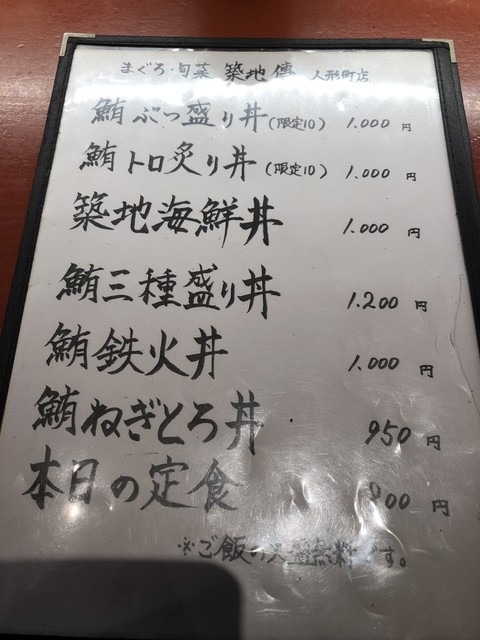 まぐろ・旬菜 築地 傳 人形町店
鮪ぶつ盛り丼(限定10) 1.000円
鮪トロ炙り丼(限定10) 1.000円
築地海鮮丼 1.000円
鮪三種盛り丼 1.200円
鮪鉄火丼 1.000円
鮪ねぎとろ丼 950円
本日の定食 800円
※ご飯の大盛無料です。